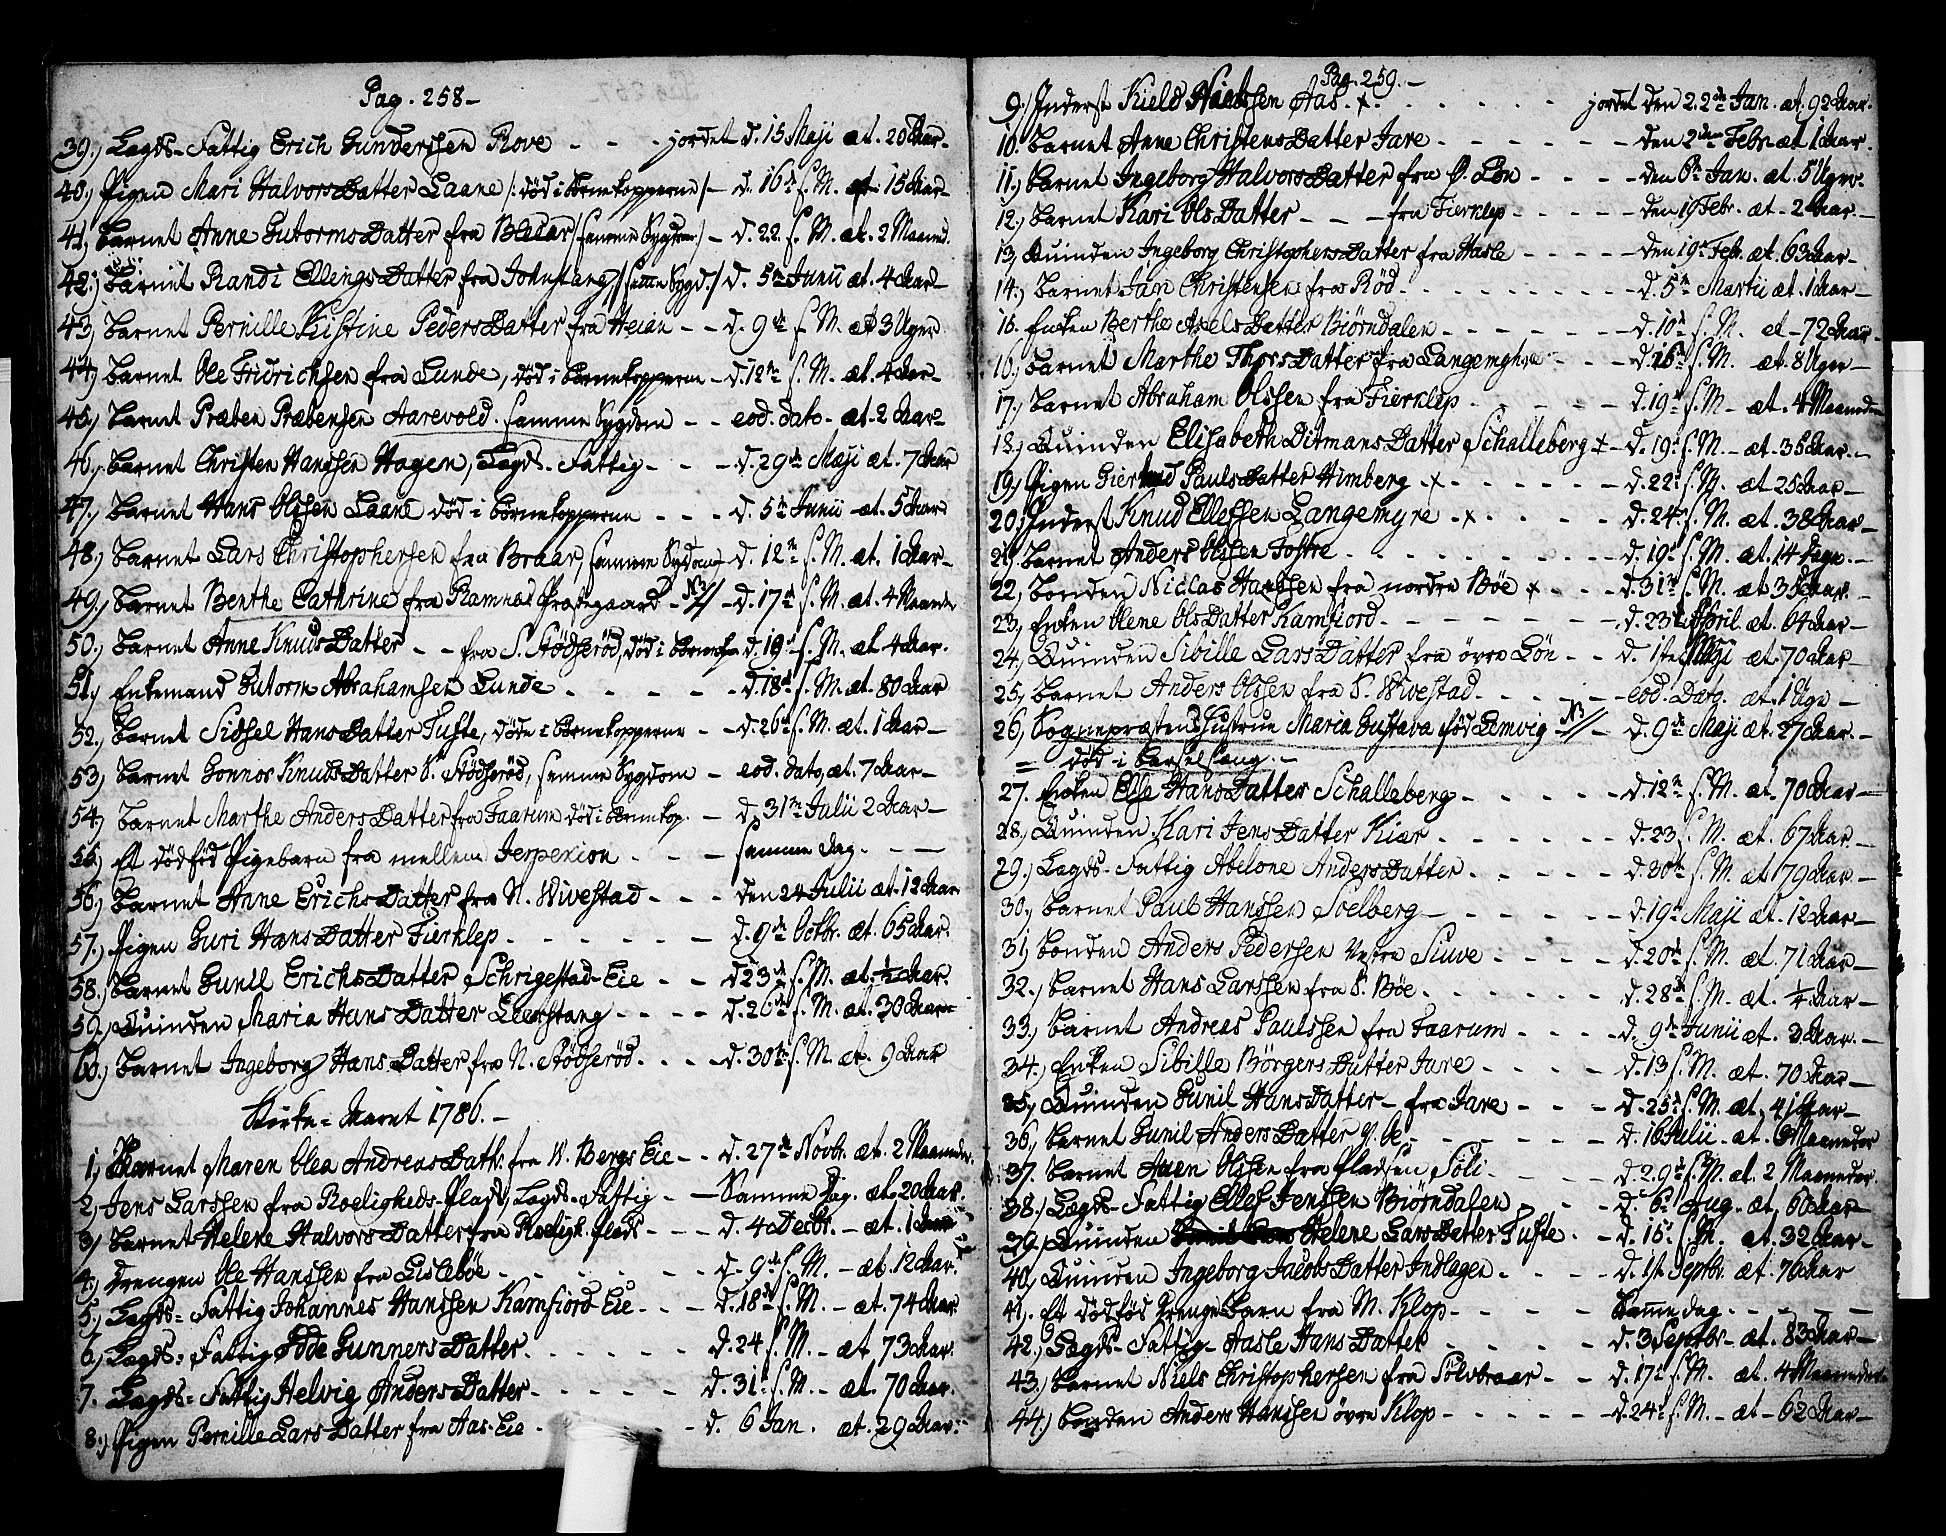 Pag. 258-
39.) Lægds-Fattig Erich Gunderssen Rove - - - jordet d. 15 Maji æt. 20 Aar-
40.) Pigen Mari Halvors Datter Laane /: død i børnekopperne/- d. 16d s. M. æt. 15 Aar-
41) Barnet Anne Gutorms Datter fra Braar /: samme Sygdom:/ - d. 22. s. M. æt. 2 Maaned.
42.) Barnet Randi Ellings Datter fra / samme Sygd./ d. 5te Junii æt. 4 Aar-
43.) Barnet Pernille Kistine Peders Datter fra Heian - - d. 9de s. M. æt 3 Uger
44.) Barnet Ole Fridrichsen fra Lunde, død i børnekopperne - d. 12te s. M. æt. 4 Aar-
45.) Barnet Præben Præbensen Aarevold. samme Sygdom - - eod. dato - æt. 2 Aar-
46.) Barnet Christen Hanssen Hagen, Lægds-Fattig - - - d. 29de Maji æt. 7 Aar
47.) Barnet Hans Olssen Laane død i børnekopperne - - - d. 5te Junii - æt. 5 Aar
48.) Barnet Lars Christophersen fra Braar, samme Sygdom - d. 12te s. M. æt. 1 Aar-
49.) Barnet Benthe Cathrine fra Ramnæs Præstegaard - N3 // - d. 17de s. M. æt. 4 Maaneder
50.) Barnet Anne Knuds Datter - - fra S. Stødserød, død i d. 19de s. M. æt. 4 Aar.
51.) Enkemand Gutorm Abrahamsen Lunde - - - - - d. 18de s. M. æt. 80 Aar
52.) Barnet Sidsel Hans Datter Tufte, døde i børnekopperne - - d. 26de s. M. æt. 1 Aar-
53.) Barnet Gonnor Knuds Datter S. Stødserød, samme Sygdom - eod. dato, æt. 7 Aar-
54.) Barnet Marthe Anders Datter fra Faarum død i børnekop. - d. 31te Julii 2 Aar-
55.) Et dødfød Pigebarn fra mellem - - - samme dag. - -
56.) Barnet Anne Erichs Datter fra N. Wivestad - - - den 24 Julii æt. 12 Aar
57.) Pigen Guri Hans Datter Fierklep - - - - - - d. 9de Octbr. æt. 65 Aar.
58.) Barnet Gunil Erichs Datter Schrigestad-Eie - - d 23de s. M. æt. ½ Aar.
59.) Quinden Maria Hans Datter - - - - d. 26de s. M. æt. 30 Aar
60.) Barnet Ingeborg Hans Datter fra N. Stødserød. - - - d. 30te s. M. æt. 9 Aar
Kirke-Aaret 1786. -
1.) Barnet Maren Olea Andreas Dattr. fra W. Bergs Eie - - d. 27de Novbr. æt. 2 Maaneder.
2.) Jens Larssen fra Roeligheds-Plads, Lægds-Fattig - - Samme Dag. æt. 20 Aar.
3.) Barnet Helene Halvors Datter fra Roeligh. plads - - - d. 4 Decbr. - æt. 1 Aar
4.) Drengen Ole Hanssen fra Lislebøe - - - - - - d. 9de s. M. - æt. 12 Aar.
5.) Lægds-Fattig Johannes Hanssen Kamfiord-Eie - - - d. 18de s. M. - æt. 74 Aar.
6.) Lægds-Fattig Odde Gunners Datter. - - - - - d. 24 s. M. - æt 73 Aar.
7. Lægds-Fattig Helvig Anders Datter - - - - - d. 31te s. M. - æt. 70 Aar.
8.) Pigen Pernille Lars Datter fra Aas-Eie - - - - d. 6 Jan. æt. 29 Aar.
Pag. 259. -
9.) Inderst Kield Aas. x - - - - - jordet den 22de Jan. æt. 92 Aar.
10. Barnet Anne Christens Datter Jare - - - - - - den 2den Febr. æt 1 Aar.
11.) Barnet Ingeborg Halvors Datter fra Ø. Løn - - - - den 6te Jan. æt. 5 Uger.
12.) Barnet Kari Ols Datter - - - fra Fierklep - - - - - den 19 Febr. æt - 2 Aar. -
13.) Quinden Ingeborg Christophers Datter fra Hasle - - - - - den 19de Febr. æt. 63 Aar -
14.) Barnet Jan Christensen fra Rød. - - - - - - - - d. 5te Martii æt. 1 Aar -
15. Enken Berthe Axels Datter Biørndalen - - - - - - d. 10de s. M. æt - 72 Aar -
16.) Barnet Marthe Thors Datter fra Langemyhre - - - d. 16de s. M. æt. 8 Uger -
17.) Barnet Abraham Olssen fra Fierklep - - - - - - d. 19de s. M - æt. 4 Maaneder
18.) Quinden Elisabeth Ditmans Datter Schalleberg x - d. 19de s. M. - æt. 35 Aar. -
19.) Pigen Giertrud Pauls Datter Himberg - x - - - - - - d. 22de s. M. æt 25 Aar -
20.) Inderst Knud Ellefsen Langemyre - x - - - - d. 24de s. M. æt. 38 Aar -
21.) Barnet Anders Olssen Fostre - - - - - - - - d. 19de s. M. æt. 14 Dage. -
22.) Bonden Niclas Hanssen fra nordre Bøe x - - - d. 31te s. M. æt. 35 Aar. -
23.) Enken Olene Ols Datter Kamfiord - - - - - - - d. 23de April æt. 64 Aar -
24.) Quinden Sibille Lars Datter fra øvre Løn - - d. 1te Maji æt. 70 Aar -
25.) Barnet Anders Olssen fra S. Wivestad - - - - - - eod. Dato. æt. 1 Uge -
26.) Sognepræstens Hustrue Maria Gustava fød Lemvig - N3 // - d. 9de Maji æt. 27 Aar. -
= død i barselsæng. -
27. Enken Else Hans Datter Schalleberg - - - - - - d. 12te s. M. æt. 70 Aar -
28.) Quinden Kari Jens Datter Kiær - - - - - - d. 23 s. M. æt. 67 Aar -
29.) Lægds-Fattig Abelone Anders Datter - - - - - d. 30te s. M. æt 79 Aar -
30.) Barnet Paul Hanssen Soelberg - - - - - - d. 19de Maji æt. 12 Aar -
31.) Bonden Anders Pedersen vestre Siuve - - - - - d. 20de s. M. æt. 71 Aar -
32.) Barnet Hans Larssen fra S. Bøe - - - - - - - d. 28de s. M. æt. ¼ Aar -
33.) Barnet Andreas Paulssen fra Faarum - - - - d. 9de Junii æt. 3 Aar. -
34.) Enken Sibille Børgers Datter Jare - - - - - d. 13 s. M. æt. 70 Aar -
35.) Quinden Gunil Hans Datter - fra Jare - - - - d. 25de s. M. æt. 41 Aar -
36.) Barnet Gunil Anders Datter - - - - - - d. 16 Julii - æt. 6 Maaneder
37. Barnet Olssen fra Pladsen Søli - - - - - d. 29de s. M. æt. 2 Maaneder.
38.) Lægds-Fattig Ellef Jenssen Biørndalen - - - d. 6te Aug. æt. 60 Aar -
39.) Quinden Helene Lars Datter Tufte. - - d. 15de s. M. æt. 32 Aar -
40.) Quinden Ingeborg Jacobs Datter Indlagen - - - - d. 1st Septbr. æt. 76 Aar
41.) Et dødfød Drenge-Barn fra M. Klop - - - - - Samme dag. - - - - -
42.) Lægds-Fattig - Aasle Hans Datter - - - - - d. 3 Septbr - æt. 83 Aar -
43.) Barnet Niels Christophersen fra Sølvbraar - - d. 17de s. M. æt. 4 Maaneder -
44.) Bonden Anders Hanssen øvre Klop - - - - - - d. 24de s. M. - æt - 62 Aar -